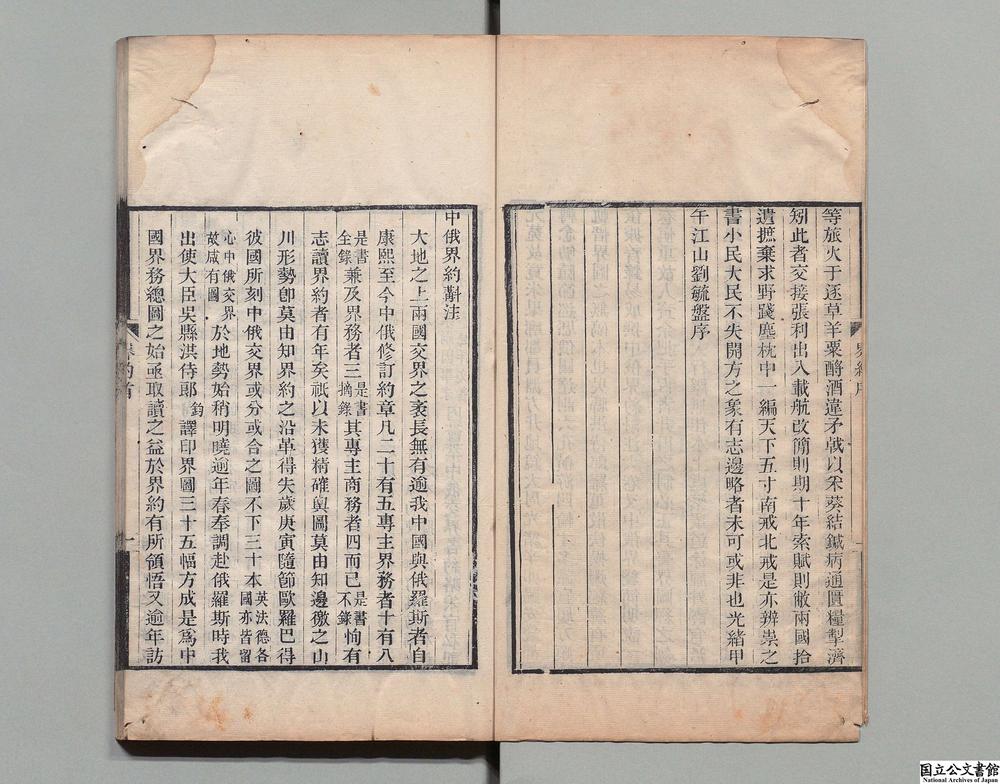 等旅火于逐草羊粟醉酒違矛戟以釆葵結鍼病通匱糧掣濟
矧此者交接張利出入載航改簡則期十年索賦則敝兩國拾
遺摭棄求野踐塵枕中一編天下五寸南戒北戒是亦辨祟之
書小民大民不失開方之象有志邊略者未可或非也光緒甲
午江山劉毓盤序
中俄界約斠注
大地之上兩國交界之袤長無有逾我中國與俄羅斯者自
康熙至今中俄修訂約章凡二十有五專主界務者十有八
是書全錄兼及界務者三是書摘錄其專主商務者四而已是書不錄恂有
志讀界約者有年矣祇以未獲精確輿圖莫由知邊徼之山
川形勢卽莫由知界約之沿革得失歲庚寅隨節歐羅巴得
彼國所刻中俄交界或分或合之圖不下三十本英法德各國亦皆留
心中俄交界故咸有圖於地勢始稍明曉逾年春奉調赴俄羅斯時我
出使大臣吳縣洪侍郎鈞譯印界圖三十五幅方成是爲中
國界務總圖之始亟取讀之益於界約有所領悟又逾年訪
国立公文書館
National Archives of Japan